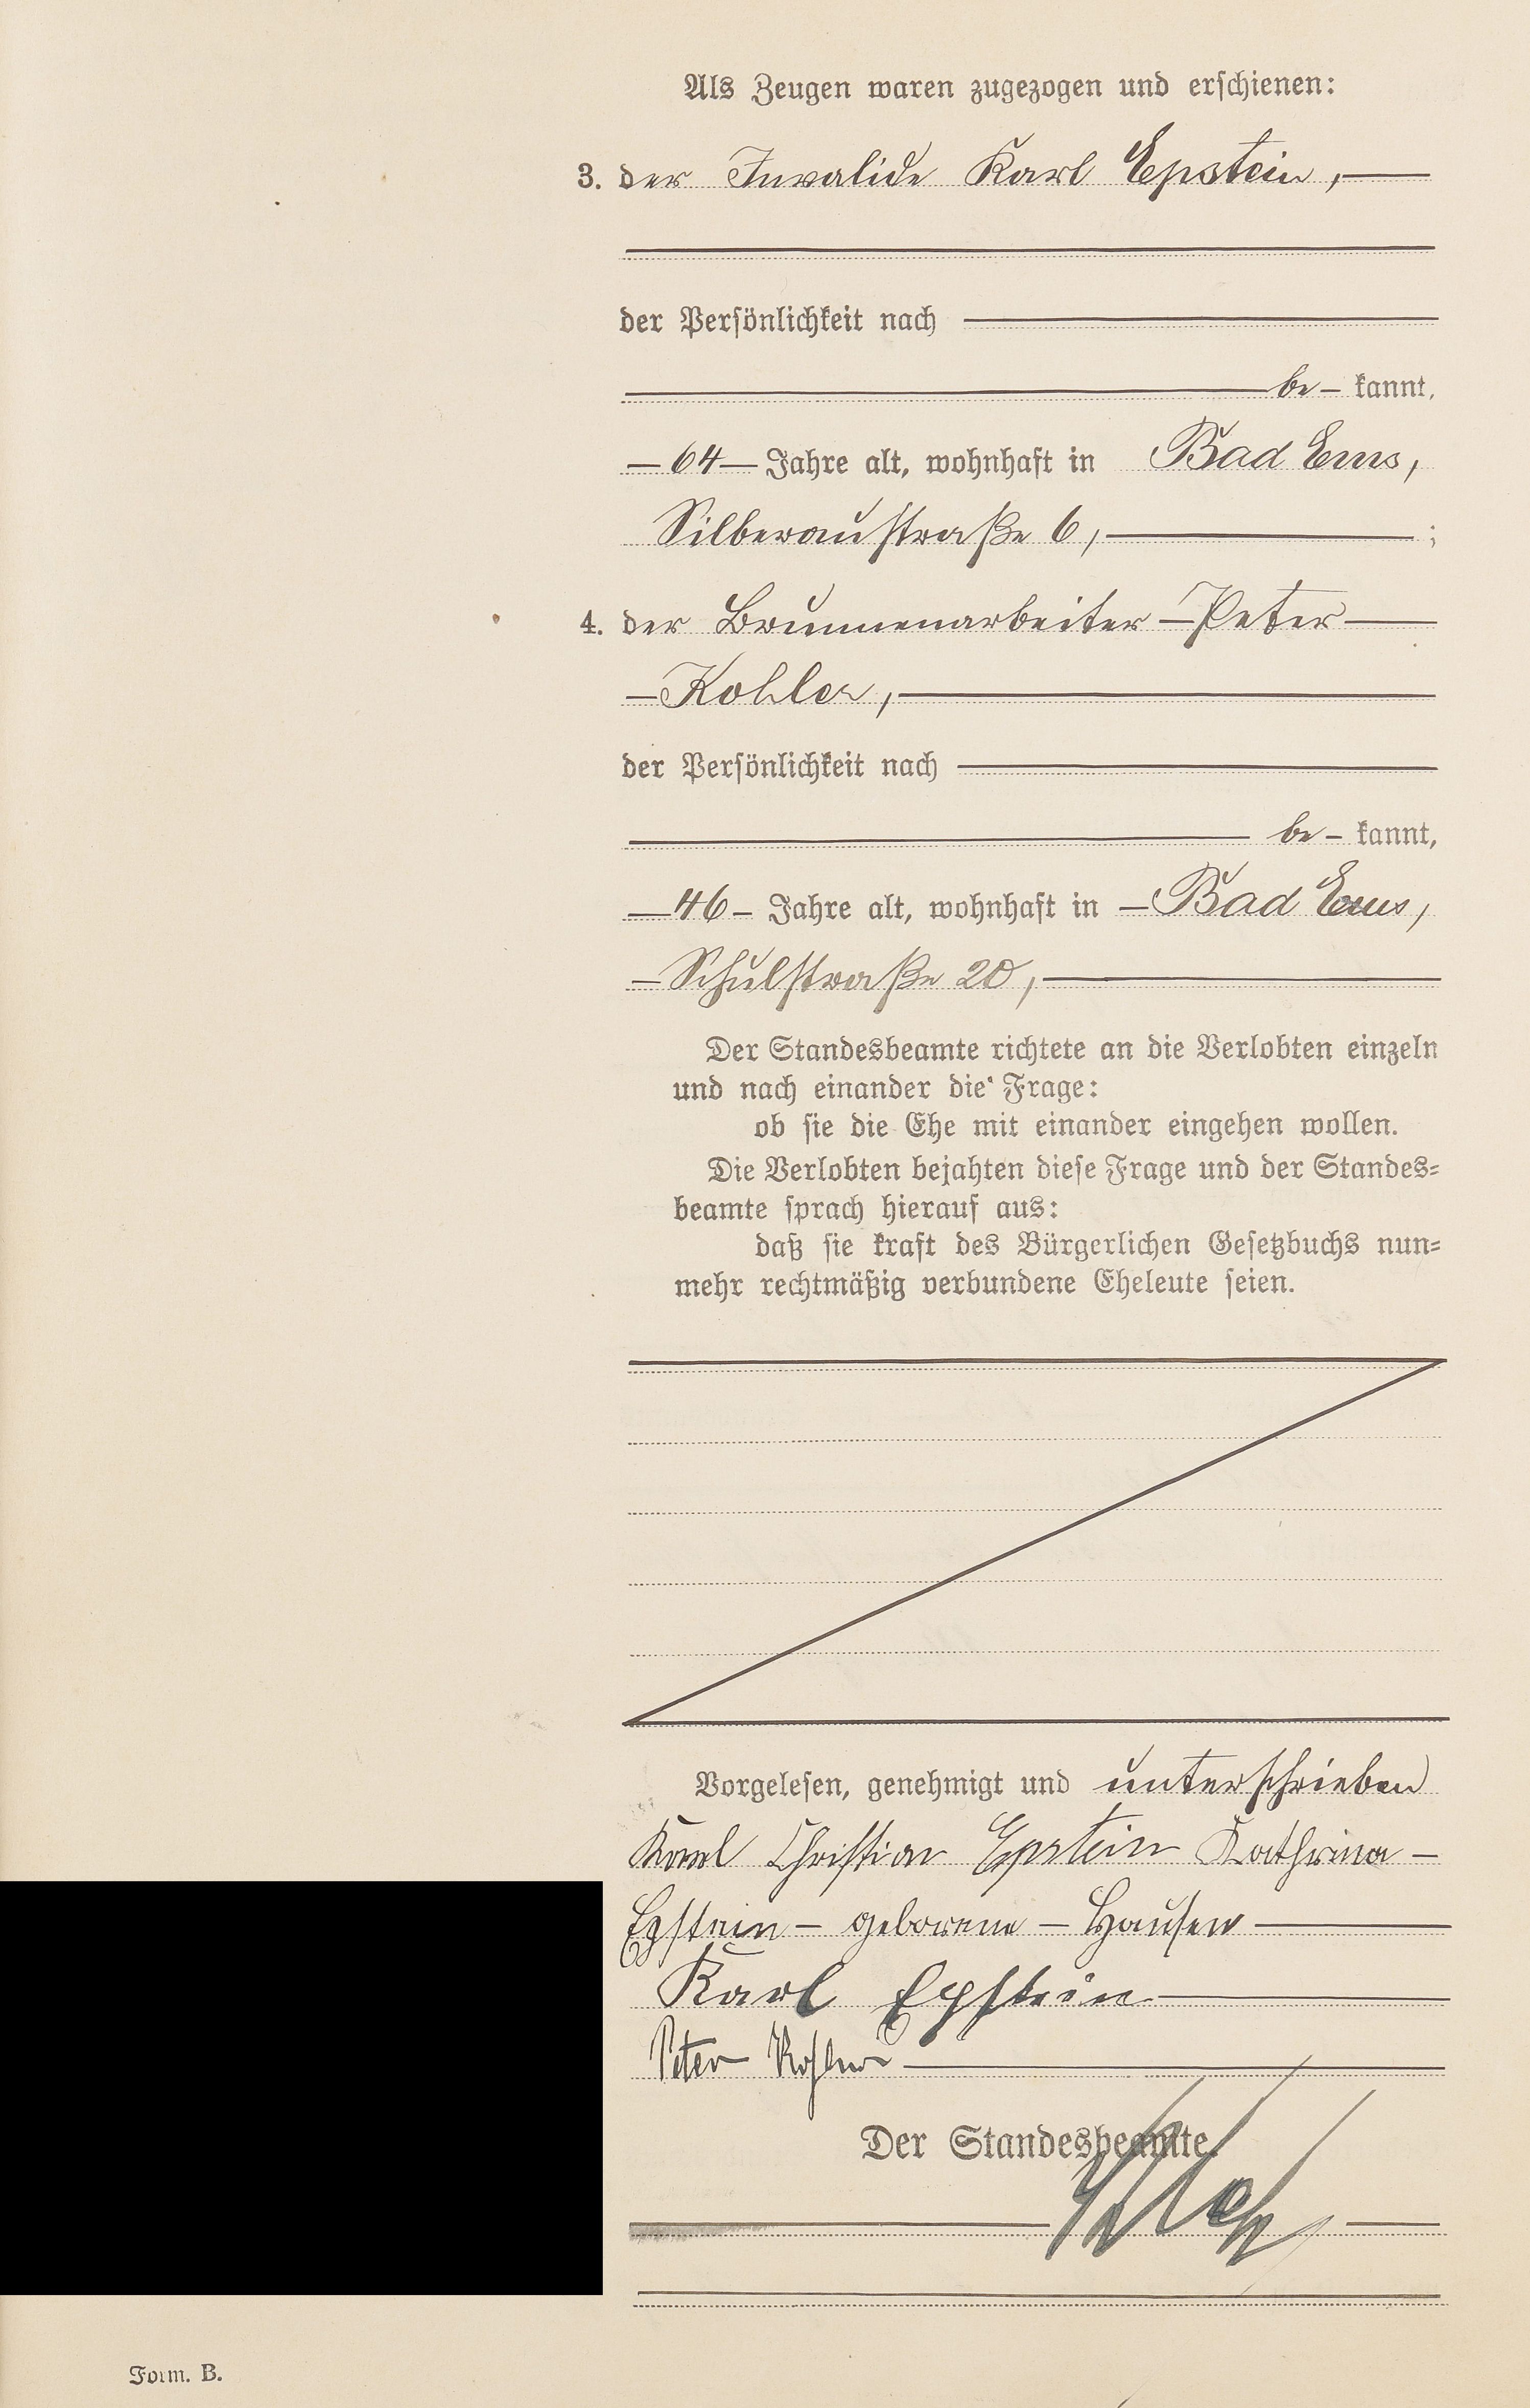 Als Zeugen waren zugezogen und erschienen:
3. der Invalide Karl Epstein,
der Persönlichkeit nach
be- kannt,
64 Jahre alt, wohnhaft in Bad Ems,
Silberaustraße 6, ;
4. der Brunnenarbeiter Peter
Kohler,
der Persönlichkeit nach
be- kannt,
46 Jahre alt, wohnhaft in Bad Ems,
Schulstraße 20,
Der Standesbeamte richtete an die Verlobten einzeln
und nach einander die Frage:
ob sie die Ehe mit einander eingehen wollen.
Die Verlobten bejahten diese Frage und der Standes-
beamte sprach hierauf aus:
daß sie kraft des Bürgerlichen Gesetzbuchs nun-
mehr rechtmäßig verbundene Eheleute seien.
Vorgelesen, genehmigt und unterschrieben
Karl Christian Epstein Kathrina
Epstein geborene Hausen
Karl Epstein
Peter Kohler
Der Standesbeamte.
Form. B.